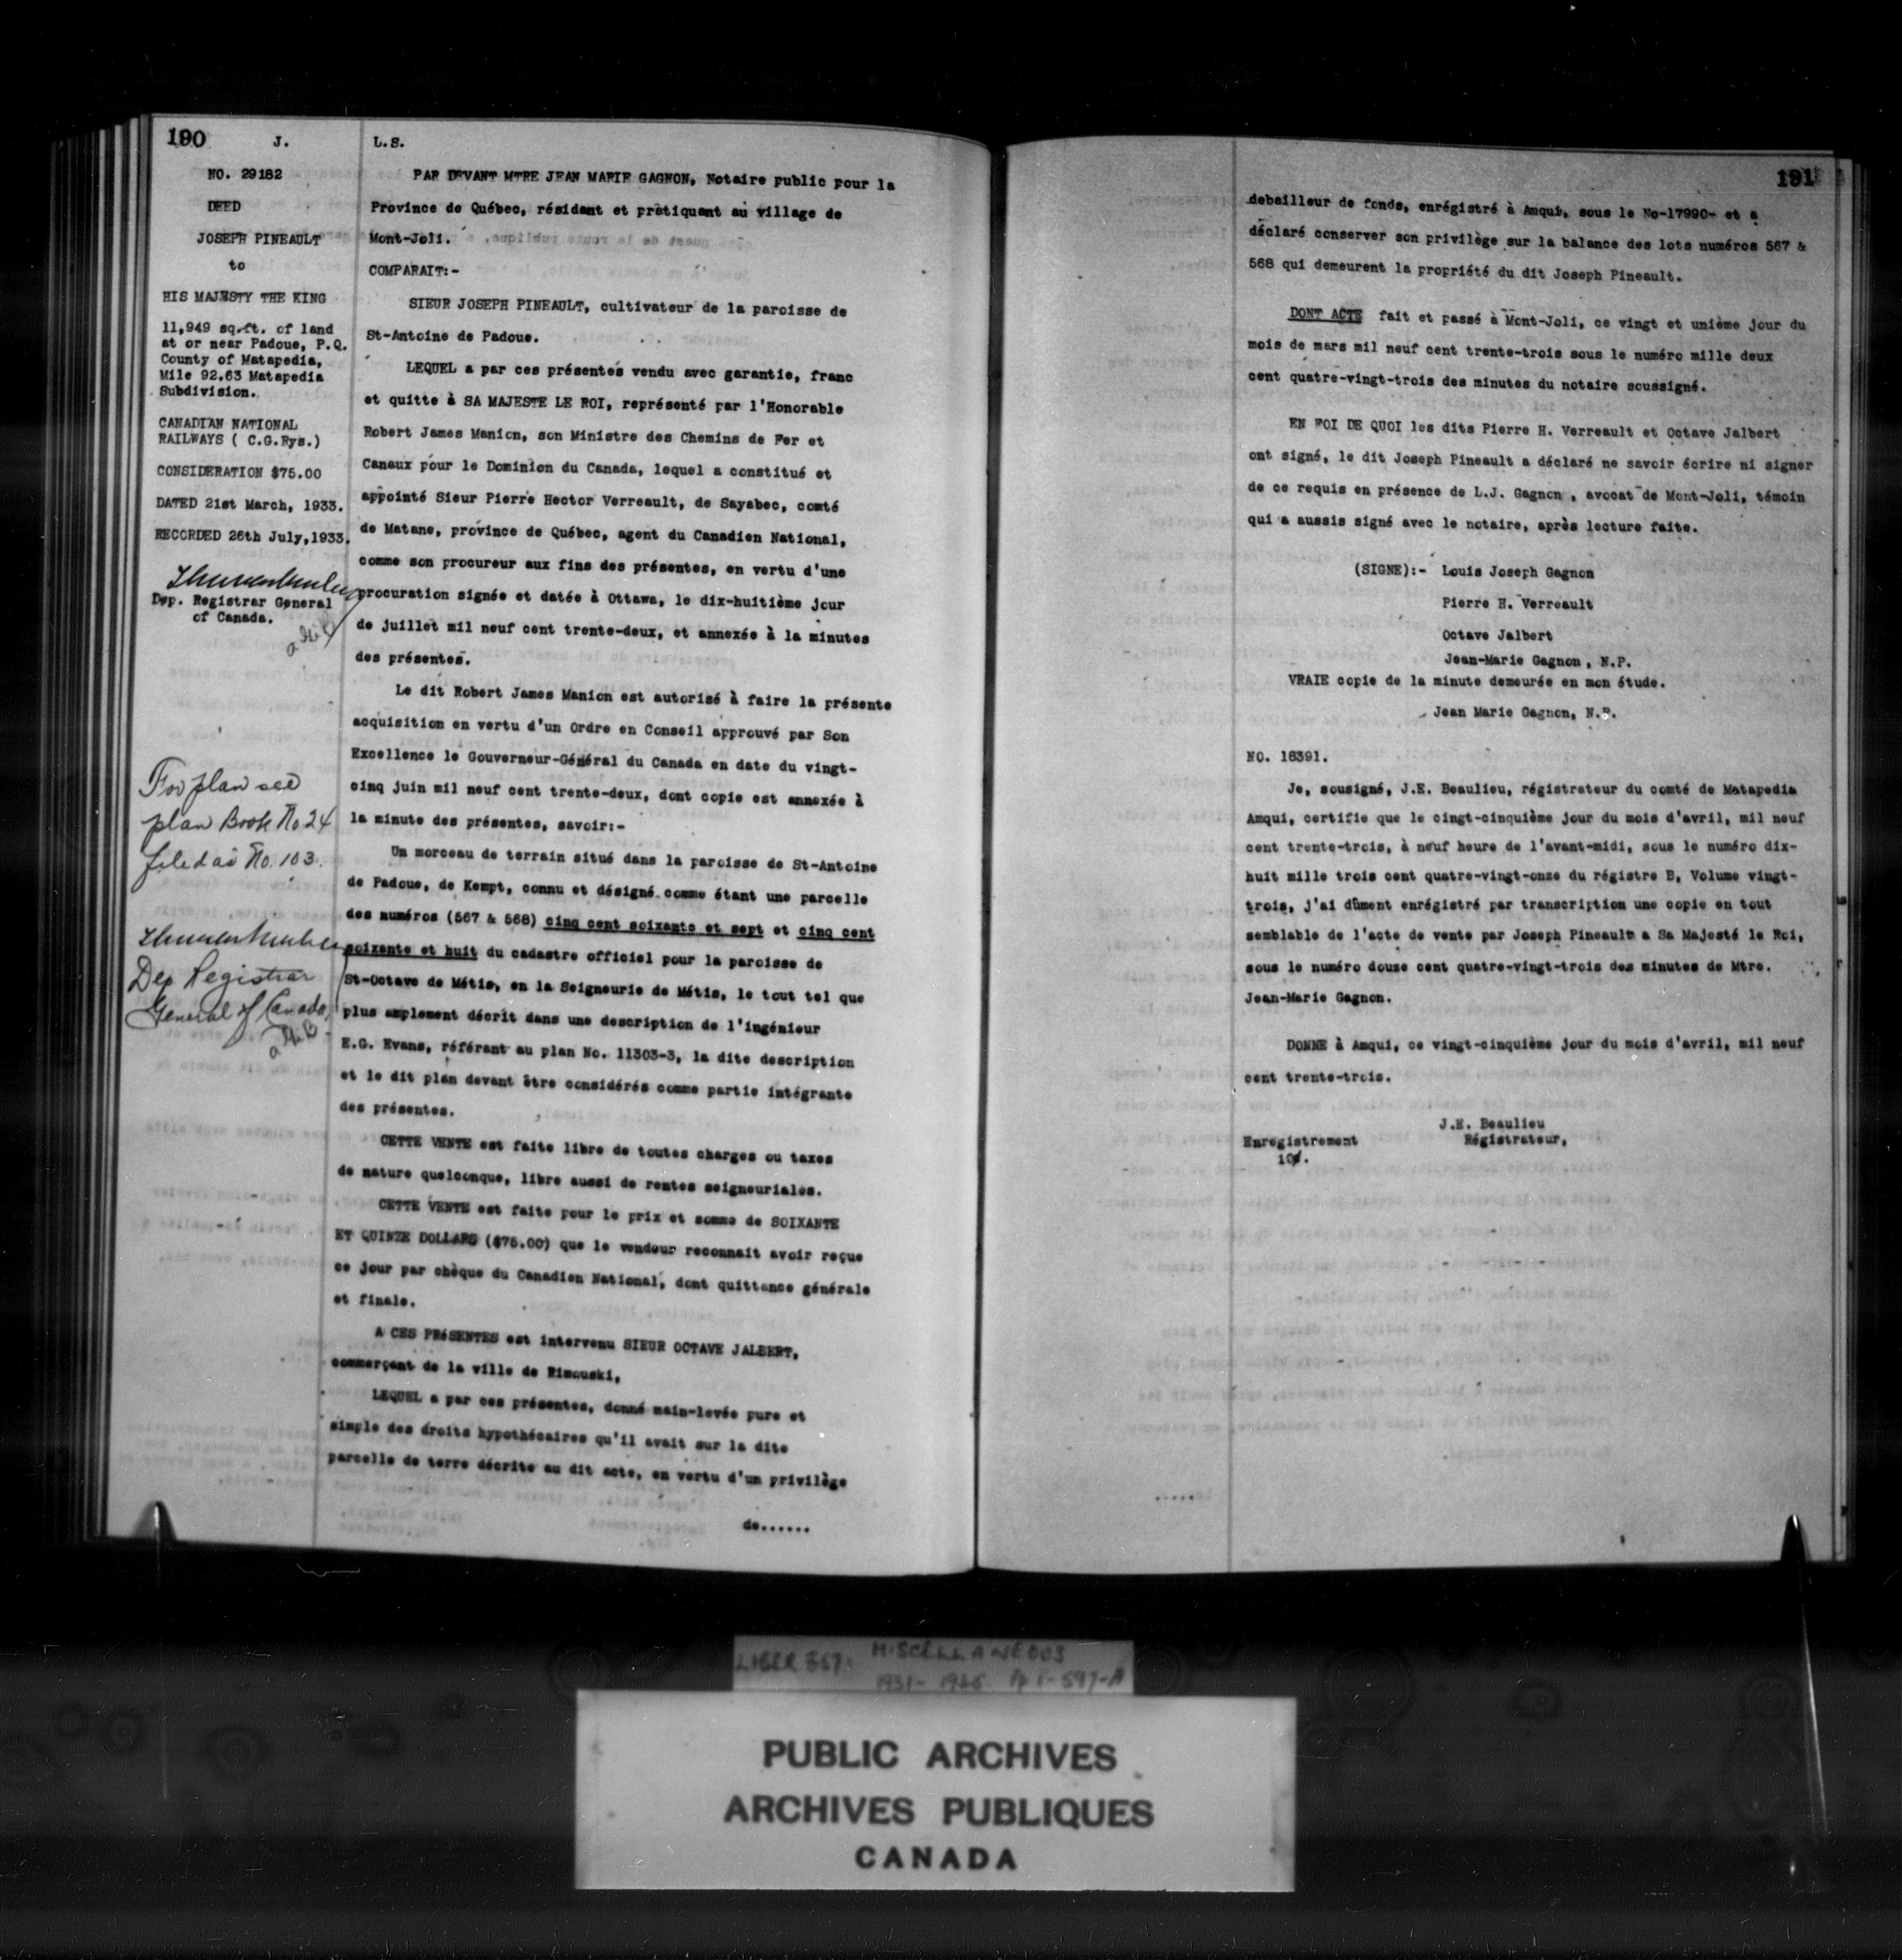 190
J.
NO. 29182
DEED
JOSEPH PINEAULT
to
HIS MAJESTY THE KING
11,949 sq.ft. of land
at or near Padoue, P.Q.
County of Matapedia,
Mile 92.63 Matapedia
Subdivision.
CANADIAN NATIONAL
RAILWAYS ( C.G.Rys.)
CONSIDERATION $75.00
DATED 21st March, 1933.
RECORDED 26th July,1933.
Dep. Registrar General
of Canada.
For plan see
plan Book No 24
filed as No. 103.
Dep Registrar
General of Canada.
L.S.
PAR DEVANT MTRE JEAN MARIE GAGNON, Notaire public pour la
Province de Québec, résidant et pratiquant au village de
Mont-Joli.
COMPARAIT:-
SIEUR JOSEPH PINEAULT, cultivateur de la paroisse de
St-Antoine de Padoue.
LEQUEL a par ces présentes vendu avec garantie, franc
et quitte à SA MAJESTE LE ROI, représenté par l'Honorable
Robert James Manion, son Ministre des Chemins de Fer et
Canaux pour le Dominion du Canada, lequel a constitué et
appointé Sieur Pierre Hector Verreault, de Sayabec, comté
de Matane, province de Québec, agent du Canadien National,
comme son procureur aux fins des présentes, en vertu d'une
procuration signée et datée à Ottawa, le dix-huitième jour
de juillet mil neuf cent trente-deux, et annexée à la minutes
des présentes.
Le dit Robert James Manion est autorisé à faire la présente
acquisition en vertu d'un Ordre en Conseil approuvé par Son
Excellence le Gouverneur-Général du Canada en date du vingt-
cinq juin mil neuf cent trente-deux, dont copie est annexée à
la minute des présentes, savoir:-
Un morceau de terrain situé dans la paroisse de St-Antoine
de Padoue, de Kempt, connu et désigné comme étant une parcelle
des numéros (567 & 568) cinq cent soixante et sept et cinq cent
soixante et huit du cadastre officiel pour la paroisse de
St-Octave de Métis, en la Seigneurie de Métis, le tout tel que
plus amplement décrit dans une description de l'ingénieur
E.G. Evans, référant au plan No. 11303-3, la dite description
et le dit plan devant être considérés comme partie intégrante
des présentes.
CETTE VENTE est faite libre de toutes charges ou taxes
de nature quelconque, libre aussi de rentes seigneuriales.
CETTE VENTE est faite pour le prix et somme de SOIXANTE
ET QUINZE DOLLARS ($75.00) que le vendeur reconnait avoir reçue
ce jour par chèque du Canadien National, dont quittance générale
et finale.
A CES PRéSENTES est intervenu SIEUR OCTAVE JALBERT,
commerçant de la ville de Rimouski,
LEQUEL a par ces présentes, donné main-levée pure et
simple des droits hypothécaires qu'il avait sur la dite
parcelle de terre décrite au dit acte, en vertu d'un privilège
de......
191
debailleur de fonds, enrégistré à Amqui, sous le No-17990- et a
déclaré conserver son privilège sur la balance des lots numéros 567 &
568 qui demeurent la propriété du dit Joseph Pineault.
DONT ACTE fait et passé à Mont-Joli, ce vingt et unième jour du
mois de mars mil neuf cent trente-trois sous le numéro mille deux
cent quatre-vingt-trois des minutes du notaire soussigné.
EN FOI DE QUOI les dits Pierre H. Verreault et Octave Jalbert
ont signé, le dit Joseph Pineault a déclaré ne savoir écrire ni signer
de ce requis en présence de L.J. Gagnon , avocat de Mont-Joli, témoin
qui a aussis signé avec le notaire, après lecture faite.
(SIGNE):- Louis Joseph Gagnon
Pierre H. Verreault
Octave Jalbert
Jean-Marie Gagnon , N.P.
VRAIE copie de la minute demeurée en mon étude.
Jean Marie Gagnon, N.P.
NO. 18391.
Je, sousigné, J.E. Beaulieu, régistrateur du comté de Matapedia
Amqui, certifie que le cingt-cinquième jour du mois d'avril, mil neuf
cent trente-trois, à neuf heure de l'avant-midi, sous le numéro dix-
huit mille trois cent quatre-vingt-onze du régistre B, Volume vingt-
trois, j'ai dûment enrégistré par transcription une copie en tout
semblable de l'acte de vente par Joseph Pineault a Sa Majesté le Roi,
sous le numéro douze cent quatre-vingt-trois des minutes de Mtre.
Jean-Marie Gagnon.
DONNE à Amqui, ce vingt-cinquième jour du mois d'avril, mil neuf
cent trente-trois.
J.E. Beaulieu
Enregistrement Régistrateur,
10¢.
LIBER 357: MISCELLANEOUS
1931-1935 Pp 1-597-A
PUBLIC ARCHIVES
ARCHIVES PUBLIQUES
CANADA